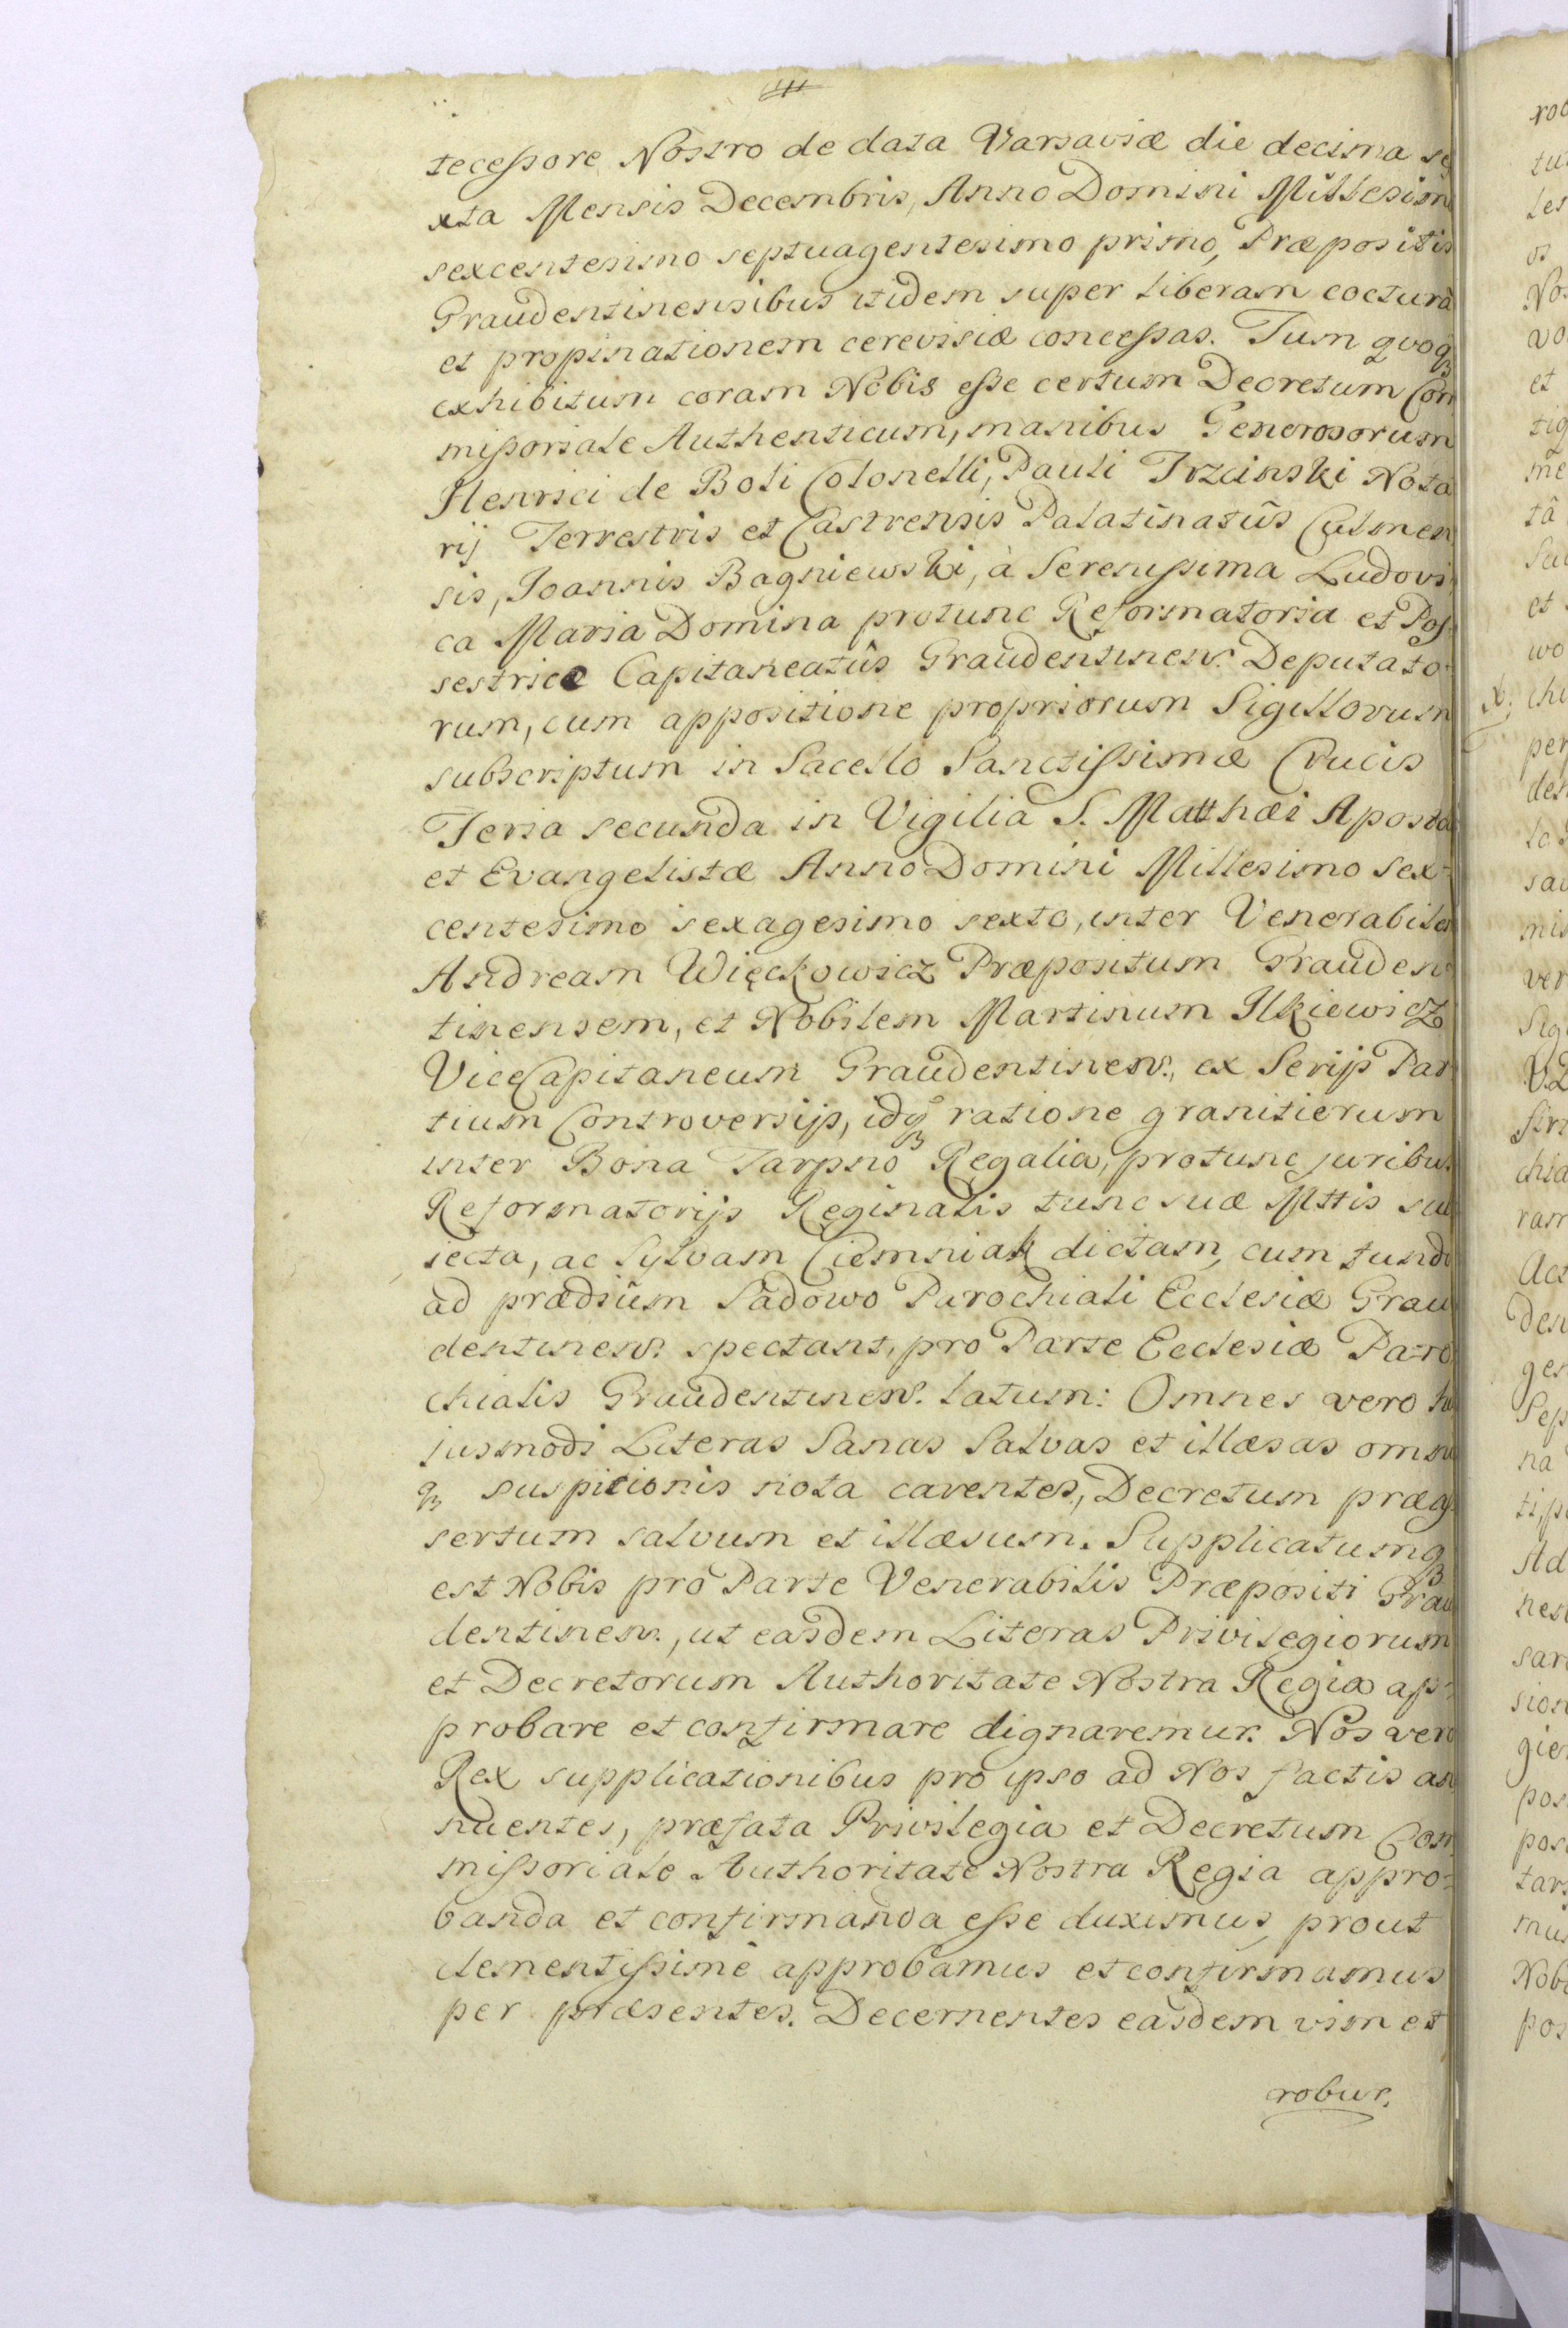 tecessore Nostro de data Varsaviæ die decima se
xta Mensis Decembris, Anno Domini Millesim
sexcentesimo septuagentesimo primo, Præpositis
Graudentinensibus itidem super liberam cocturā
et propinationem cerevisiæ concessas. Tum quoq
exhibitum coram Nobis esse certum Decretum Com
missoriale Authenticum, manibus Generosorum
Henrici de Boli Colonelli, Pauli Trzcinski Nota
rij Terrestris et Castrensis Palatinatûs Culmen
sis, Joannis Bagniewski, à Serenissima Ludovi
ca Maria Domina protunc Reformatoria et Pos
sestrice Capitaneatûs Graudentinens. Deputato-
rum, cum appositione propriorum Sigillorum
subscriptum in Sacello Sanctissimæ Crucis
Feria secunda in Vigilia S. Matthæi Aposto
et Evangelistæ Anno Domini Millesimo Sex-
centesimo sexagesimo sexto, inter Venerabilem
Andream Więckowicz Præpositum Grauden
tinensem, et Nobilem Martinum Ilkiewicz
ViceCapitaneum Graudentinens., ex Serijs Par
tium Controversijs, idq ratione granitierum
inter Bona Tarpno Regalia, protunc juribus
Reformatorijs Reginalis tunc suæ Mttis sub
iecta, ac Sylvam Ciemniak dictam, cum fundo
ad prædium Sadowo Parochiali Ecclesiæ Grau
dentinens. spectant, pro Parte Ecclesiæ Paro
chialis Graudentinens. latum: Omnes vero hu
jusmodi Literas Sanas Salvas et illæsas omni
q suspicionis nota carentes, Decretum præin
sertum salvum et illæsum. Supplicatumq
est Nobis pro Parte Venerabilis Præpositi Grau
dentinens., ut easdem Literas Privilegiorum
et Decretorum Authoritate Nostra Regia ap-
probare et confirmare dignaremur. Nos vero
Rex supplicationibus pro ipso ad Nos factis an
nuentes, præfata Privilegia et Decretum Com
missoriale Authoritate Nostra Regia appro-
banda et confirmanda esse duximus, prout
clementissimè approbamus et confirmamus
per præsentes. Decernentes easdem vim et
robur.